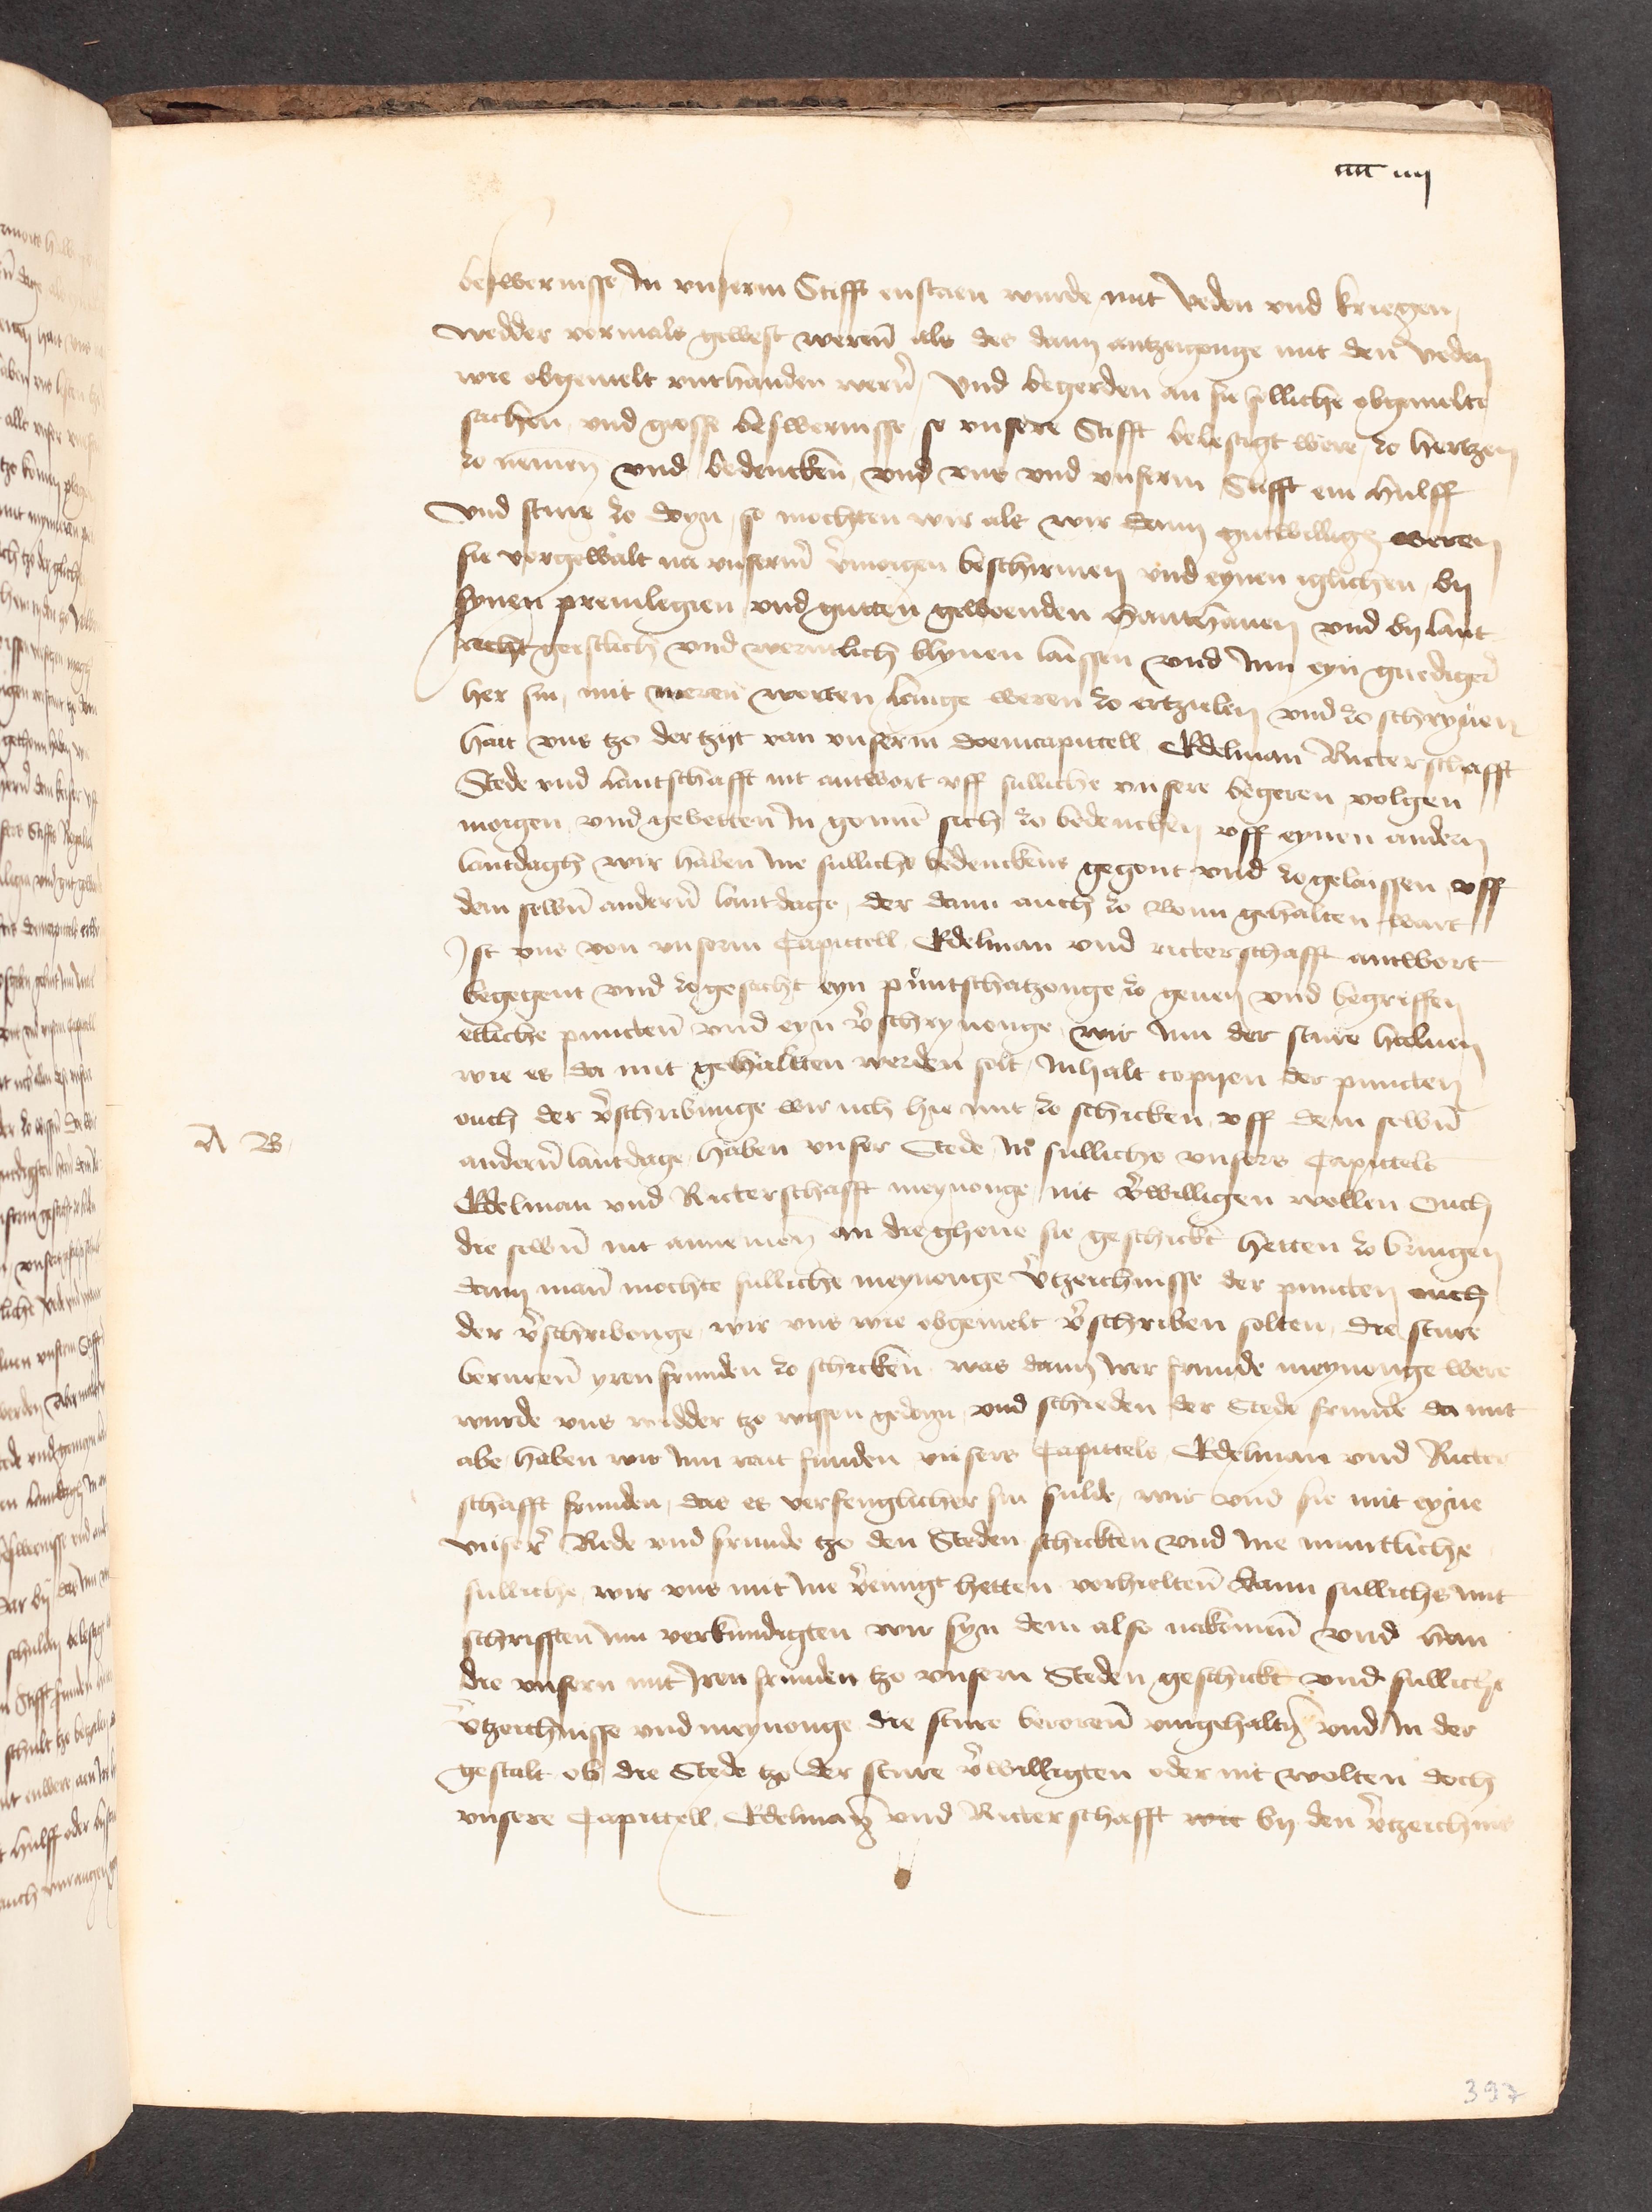 beswernisse in vnserm Stifft enstaen wurde mit veden vnd kriegen
wedder vormals gewest weren als des dann antzeigonge mit den veden
wie obgemelt vurhanden wern, Vnd begerden an sie solliche obgemelte
sachen vnd grosse beswernisse so vnsere Stifft belestigt were zo hertzen
zo nemen vnd bedencken vnd vns vnd vnserm Stifft ein hulff
Vnd sture zo doyn, so mochten wir als wir dann gutwillig weren
sie vorgewalt na vnserm vermoigen beschirmen vnd eynen iglichen by
synen preuilegien vnd gutten gewoenden hanthauen vnd by lant
recht geistlich vnd werntlich blyuen laissen vnd inn eyn gnediger
her sin, mit meren worten lange weren zo ertzielen vnd zo schryuen
hait vns tzo der tzyt van vnserm doemcapittell Edelman Ritterschafft
Stede vnd lantschafft nit antwort vff sulliche vnsere begeren volgen
moigen vnd gebetten in gonnen sich zo bedencken vff eynen andern
lantdagh wir haben ine sulliche bedenckens gegont vnd zogelaissen vff
dem seluen anderen lantdage, der dann auch zo bonn gehalten wart
Ist vns von vnserm Capittell Edelman vnd ritterschafft antwort
begegent vnd zogesacht eyn puntschatzonge zo geuen vnd begriffen
etliche puncten vnd eyn verschryuonge wir inn der sture haluen
wie es da mit gehalten werden solt, inhalt copyen der puncten
ouch der verschribunge wir uch hie mit zo schicken vff dem seluen
A B
anderen lantdage, haben vnser Stede in sulliche vnsers Capittels
Edelman vnd Ritterschafft meynonge nit verwilligen wollen Ouch
die seluen nit annemen an die ghene sie geschickt hetten zo bringen
dann man mochte sulliche meynonge vertzeichnisse der puncten ouch
der verschribonge wir vns wie obgemelt verschriben solten, die sture
berurenn yren frunden zo schicken was dann irer frunde meynonge were
wurde vns widder tzo wissen gedoyn vnd schieden der Stede frunde da mit
abe, haben wir inn rait funden vnsers Capittels Edelman vnd Ritter
schafft frunden, das es verfenglicher sin sulde, wir vnd sie mit eyne
vnser Rede vnd frunde tzo den Steden schickten vnd ine muntliche
sulliche, wir vns mit ine vereinigt hetten vorhielten dann sullichs mit
schrifften inn verkundigten wir syn dem also nakomen vnd han
die vnsern mit iren frunden tzo vnsern Steden geschickt vnd sulliche
vertzeichnisse vnd meynonge die sture beroren vurgehalten vnd in der
gestalt ob die Stede tzo der sture verwilligten oder nit wolten doch
vnsere Capittell Edelman vnd Ritterschafft by den vertzeichnis
397